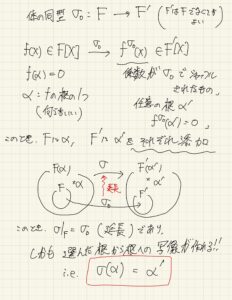 体の同型 σ₀: F → F' (F'はFでなくても よい)
f(x) ∈ F[x] →^{σ₀} f^{σ₀}(x) ∈ F'[x]
f(α) = 0
係数がσ₀で
されたもの,
α: fの根の1つ
(何でもいい)
任意の根 α'
f^{σ₀}(α') = 0,
このとき, Fにα, F'にα'をそれぞれ添加
F(α) →^{σ} F'(α')
F ・α ・α' F'
延長
σ₀
このとき, σ|_F = σ₀ (延長) であり,
しかも 選んだ根から根への写像が作れる!!
i.e. σ(α) = α'